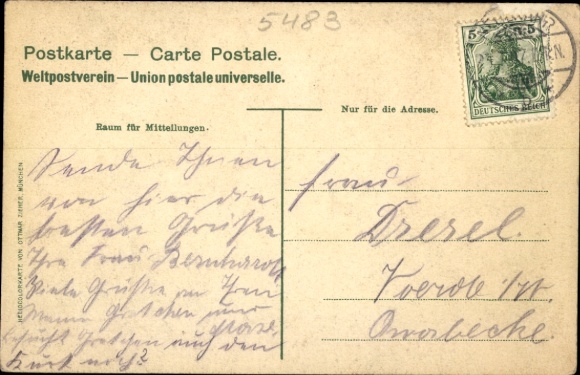 5483
Postkarte — Carte Postale.
Weltpostverein — Union postale universelle.
Raum für Mitteilungen.
Nur für die Adresse.
5 5
DEUTSCHES REICH
HELIOCOLORKARTE VON OTTMAR ZIEHER, MÜNCHEN
Sende Ihnen
von hier die
besten Grüße
Ihre Frau Bernhardt
Viele Grüße an Ihren
Mann Gretchen und
Besucht Gretchen auch den
Kurt noch?
Frau
Drexel.
Voerde i/W.